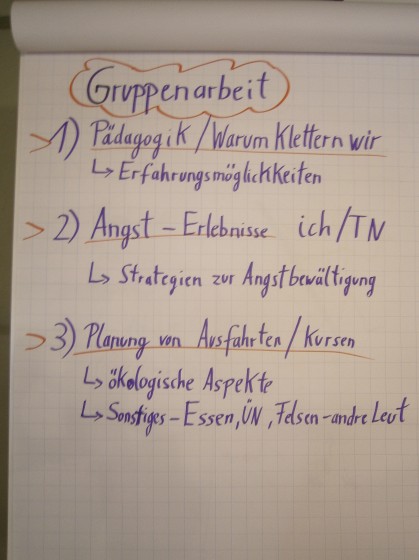 Gruppenarbeit
> 1) Pädagogik / Warum Klettern wir
↳ Erfahrungsmöglichkeiten
> 2) Angst - Erlebnisse ich / TN
↳ Strategien zur Angstbewältigung
> 3) Planung von Ausfahrten / Kursen
↳ ökologische Aspekte
↳ Sonstiges - Essen, ÜN, Felsen - andre Leut